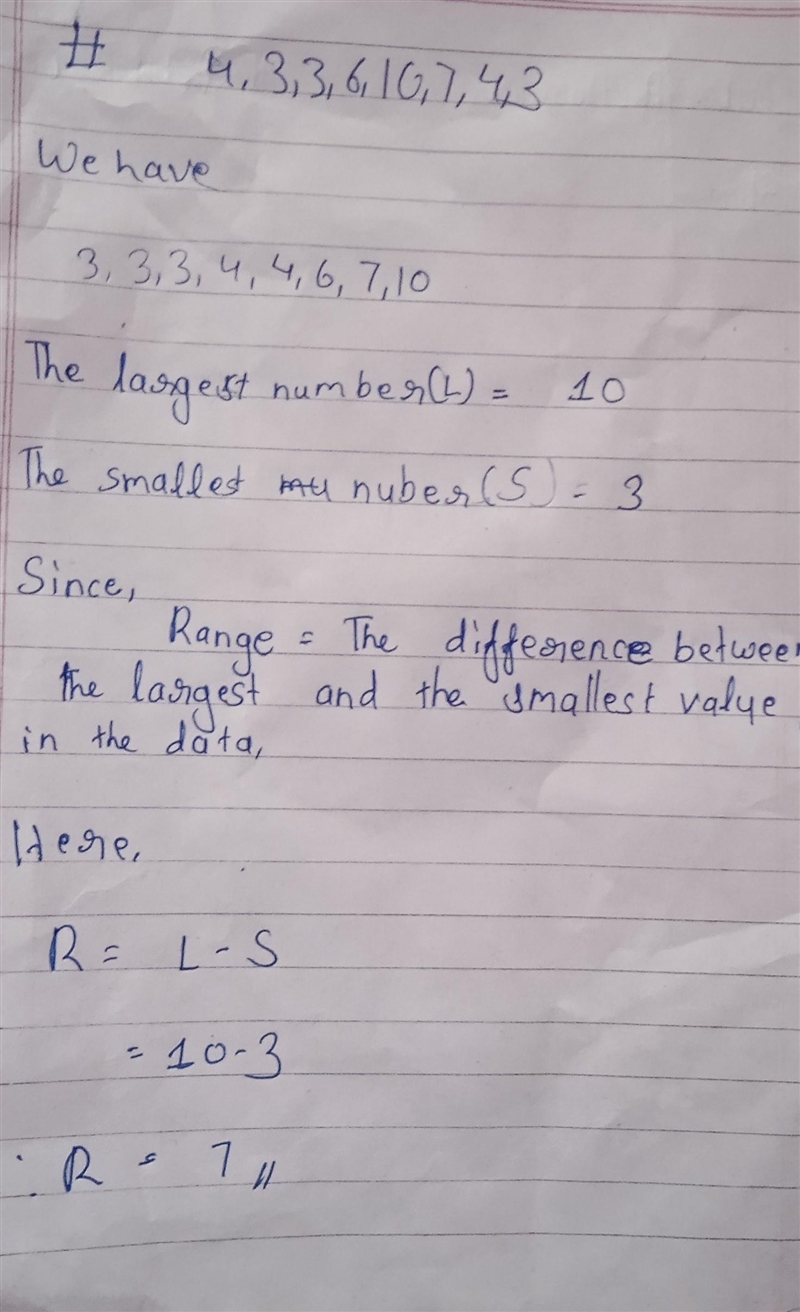 # 4, 3, 3, 6, 10, 7, 4, 3
We have
3, 3, 3, 4, 4, 6, 7, 10
The largest number(L) = 10
The smalled nuber(S) = 3
Since,
Range = The difference between
the largest and the smallest value
in the data,
Here,
R = L - S
= 10 - 3
∴ R = 7 //